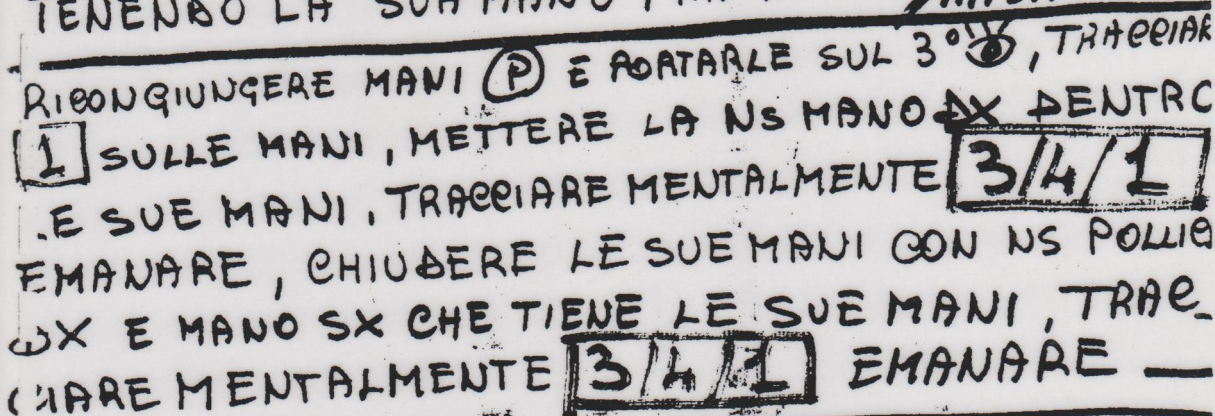 TENENDO LA SUA MANO
RICONGIUNGERE MANI (P) E PORTARLE SUL 3°, TRACCIAR
1 SULLE MANI, METTERE LA NS MANO DX DENTRO
LE SUE MANI, TRACCIARE MENTALMENTE 3/4/1
EMANARE, CHIUDERE LE SUE MANI CON NS POLLIC
DX E MANO SX CHE TIENE LE SUE MANI, TRAC_
CIARE MENTALMENTE 3/4/1 EMANARE —